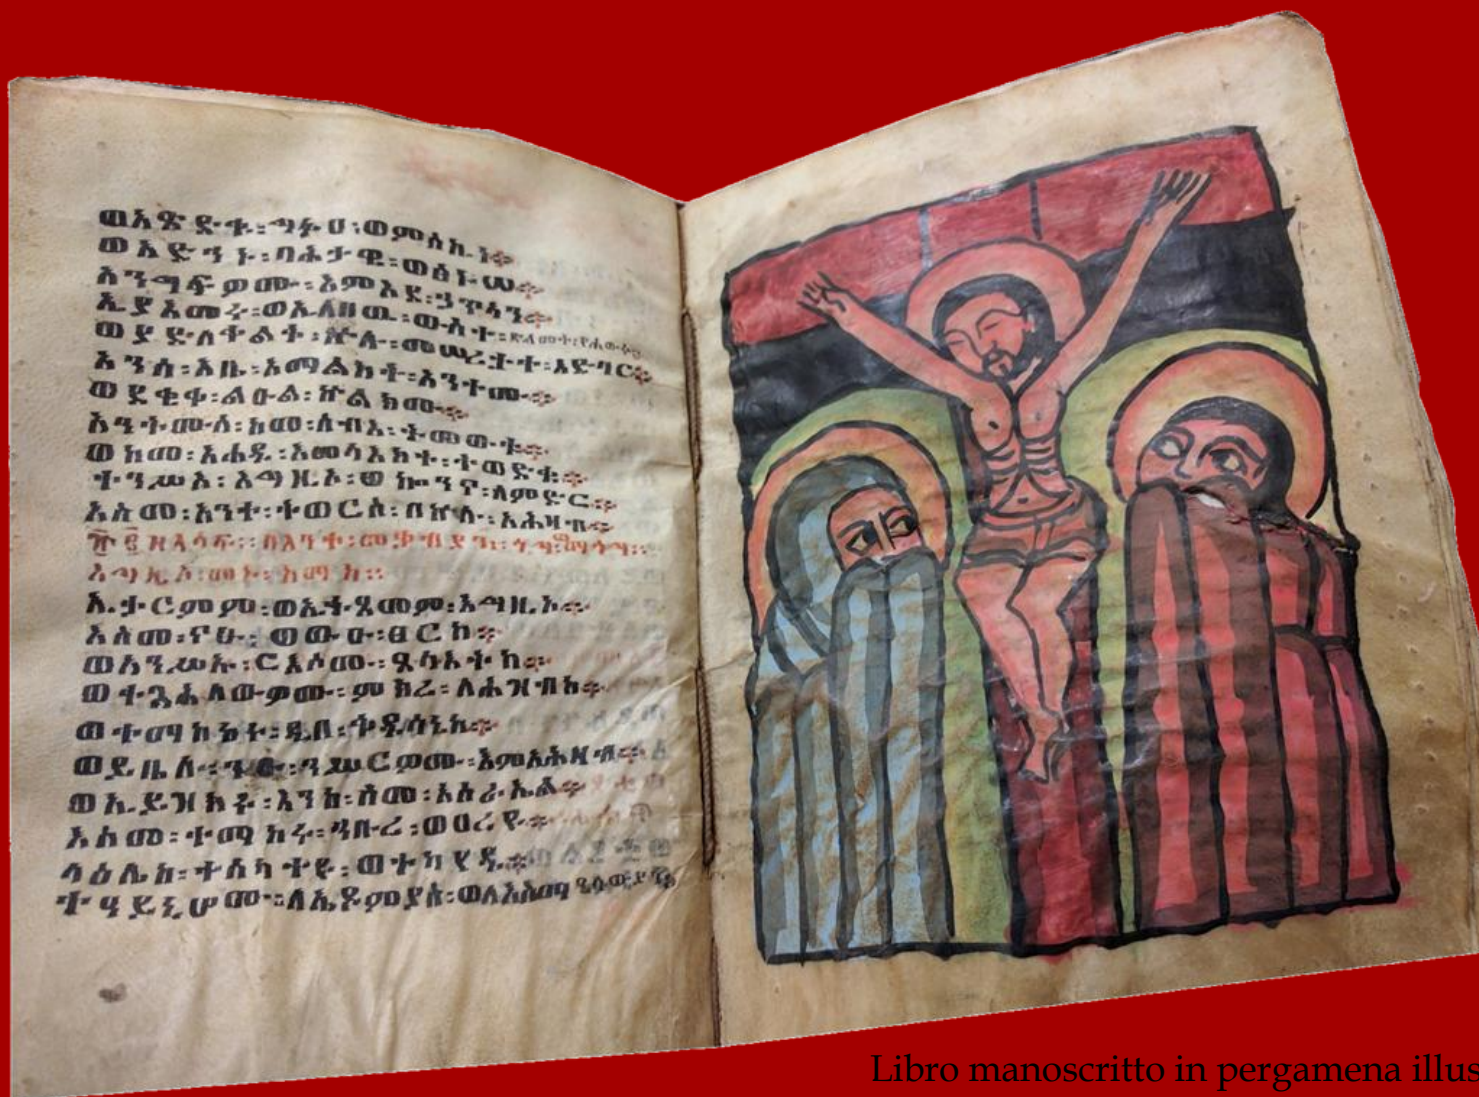 ወአጽድቁ፡ግፉዐ፡ወምስኪነ።
ወአድኅኑ፡ባሕታዌ፡
አንግፍዎሙ፡እምእደ፡ኃጥኣን።
ኢያእመሩ፡ወኢለበዉ፡ውስተ፡ጽልመት፡የሐውሩ።
ወያድለቀልቁ፡ኵሉ፡መሠረታተ፡ለምድር።
አንሰ፡እቤ፡አማልክት፡አንትሙ።
ወደቂቀ፡ልዑል፡ኵልክሙ።
አንትሙሰ፡ከመ፡ሰብእ፡ትመውቱ።
ወከመ፡አሐዱ፡እመላእክት፡ትወድቁ።
ተንሥእ፡እግዚኦ፡ወኰንና፡ለምድር።
እስመ፡አንተ፡ትወርስ፡በኵሉ፡አሕዛብ።
፹፪ ዘአሳፍ፡፡በእንተ፡መቃብያን፡
እግዚኦ፡መኑ፡ከማከ።
ኢታርምም፡ወኢትጸመም፡እግዚኦ።
እስመ፡ናሁ፡ወውዑ፡ፀርከ።
ወአንሥኡ፡ርእሶሙ፡ጸላእትከ።
ወተጓሕለውዎሙ፡ምክረ፡ለሕዝብከ።
ወተማከሩ፡ዲበ፡ቅዱሳኒከ።
ወይቤሉ፡ንዑ፡ንሠርዎሙ፡እምአሕዛብ።
ወኢይዝክሩ፡እንከ፡ስመ፡እስራኤል።
እስመ፡ተማከሩ፡ኅቡረ፡ወዐረዩ።
ላዕሌከ፡ተስካተዩ፡ወተካየዱ።
ተዓይኒሆሙ፡ለኤዶምያስ፡ወለእስማኤላውያን
Libro manoscritto in pergamena illus